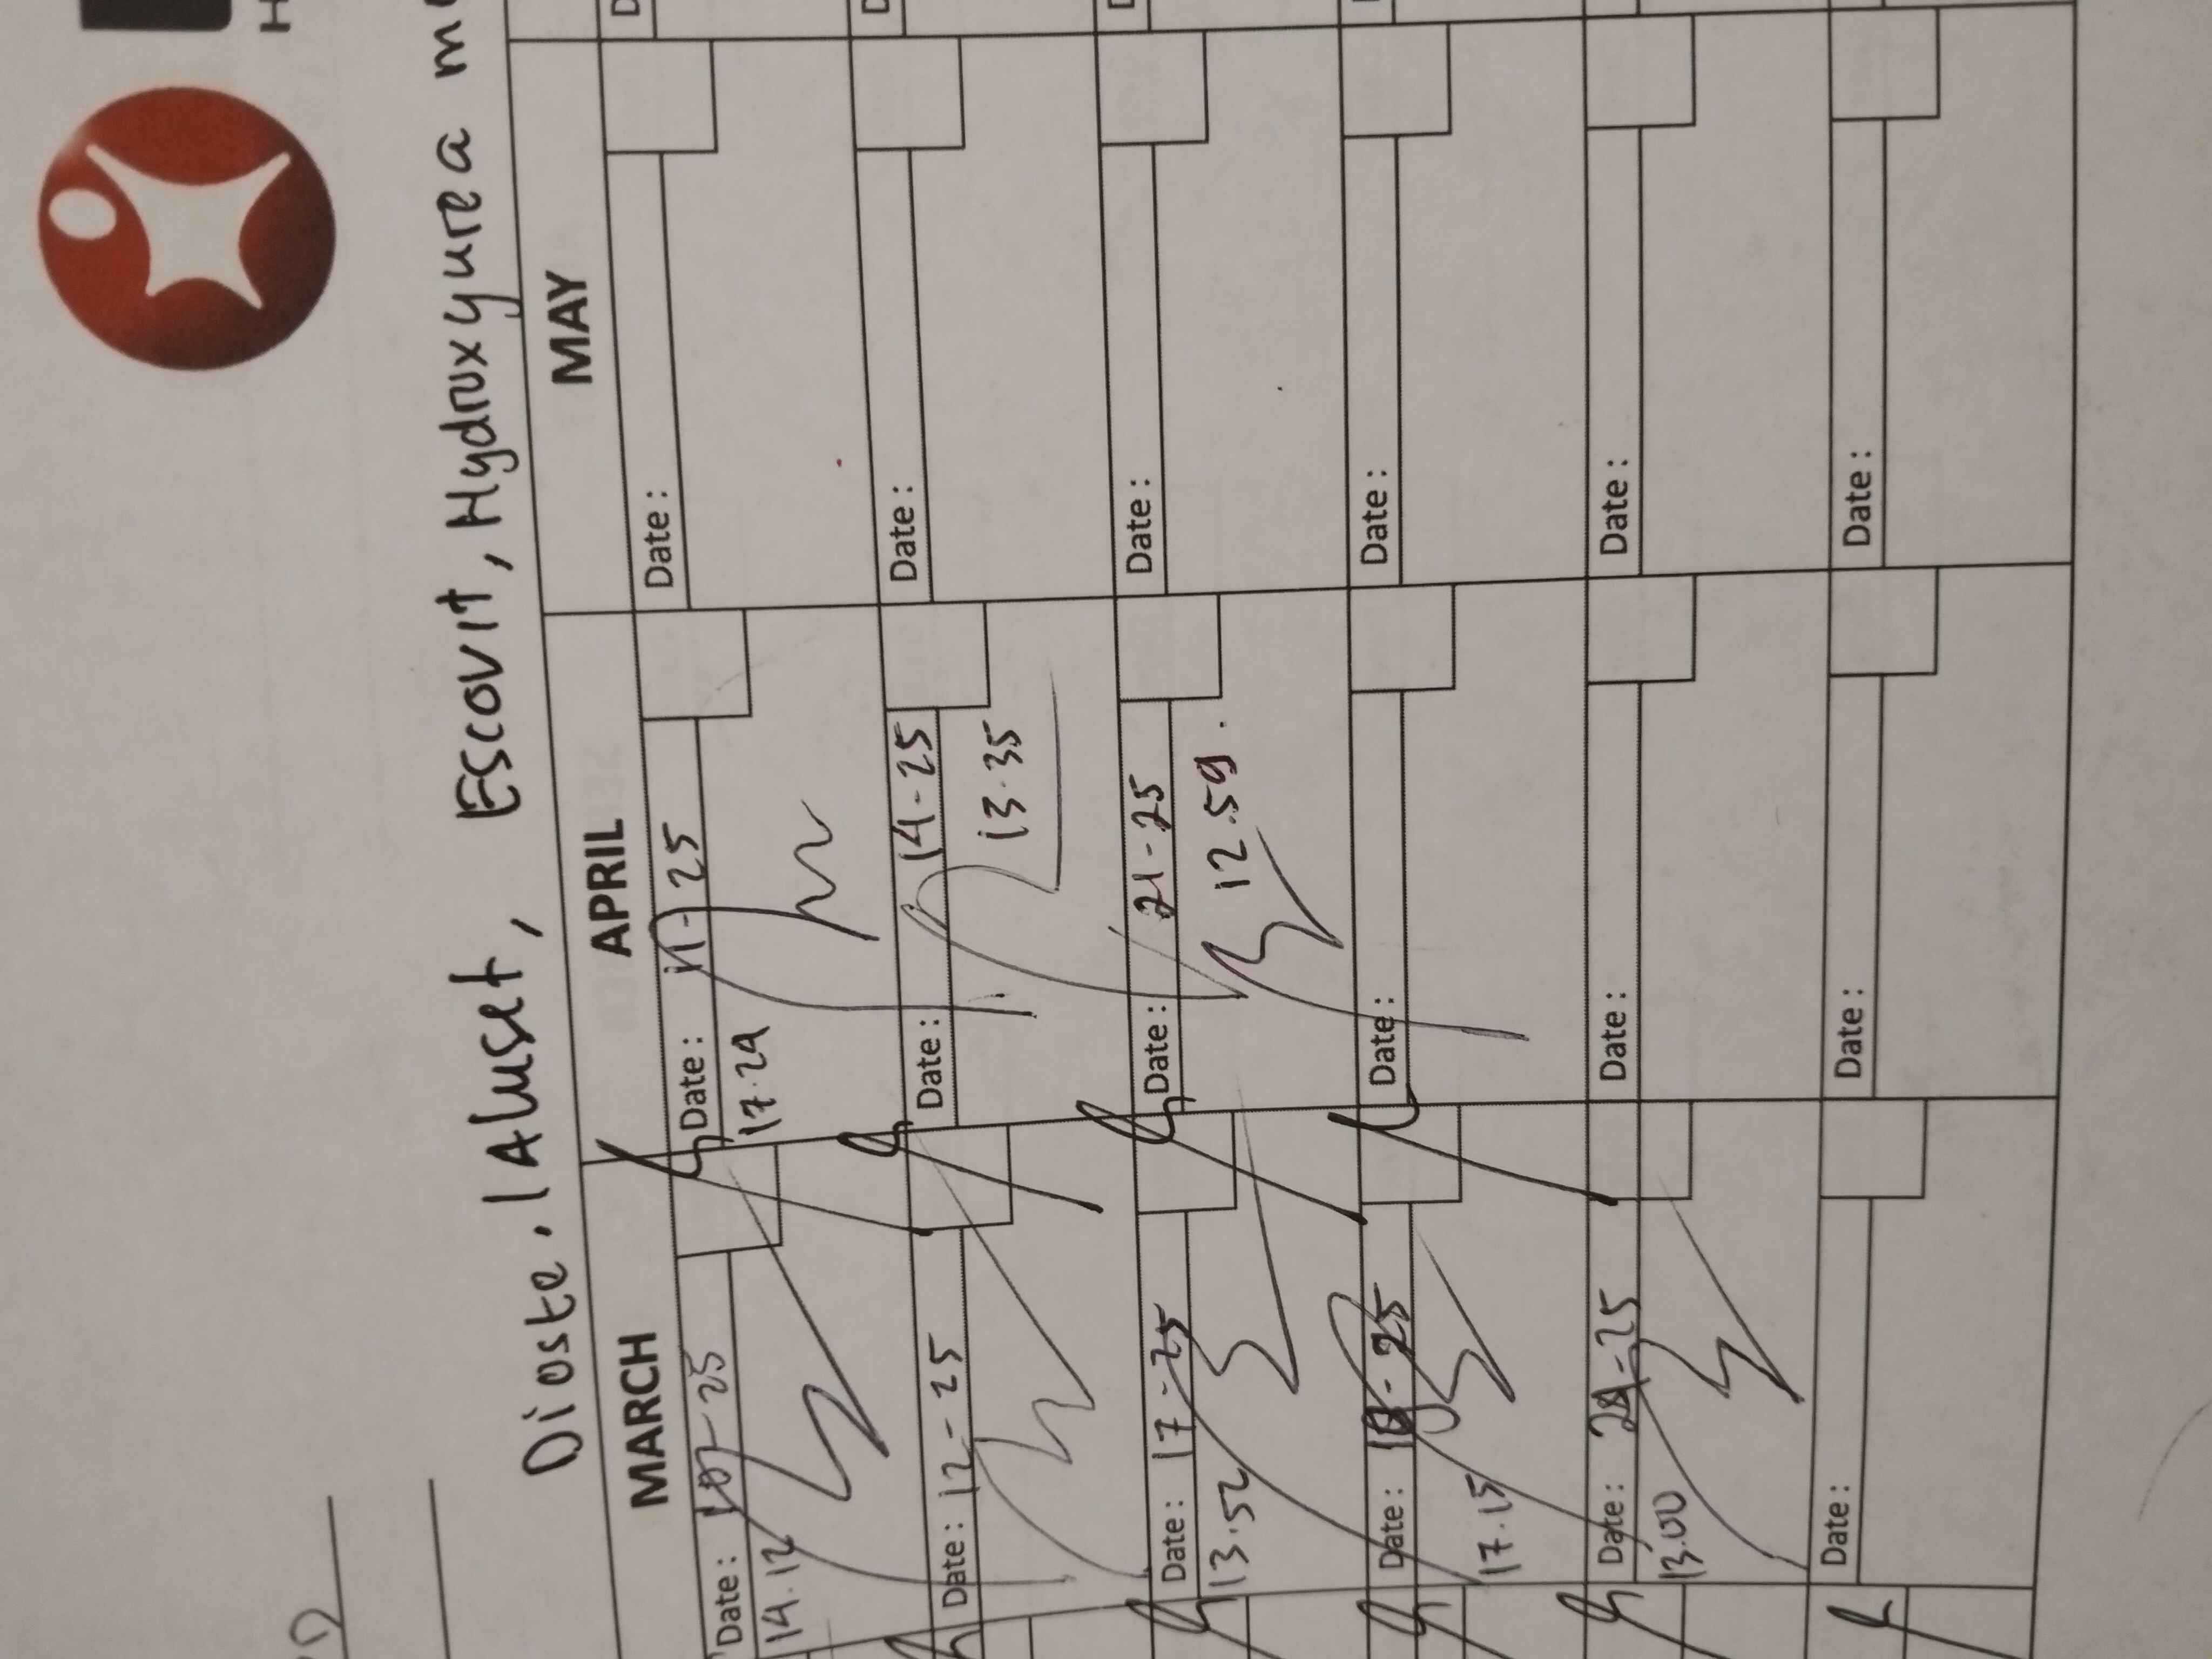 Dioste. / Aluset, Escovit, Hydroxyurea
MARCH APRIL MAY
Date: Date: 11-25 Date:
14.12 17.29
Date: 12-25 Date: 14-25 Date:
13.35
Date: 17-25 Date: 21-25 Date:
13.52 12.59.
Date: Date: Date:
17.15
Date: Date: Date:
13.00
Date: Date: Date: